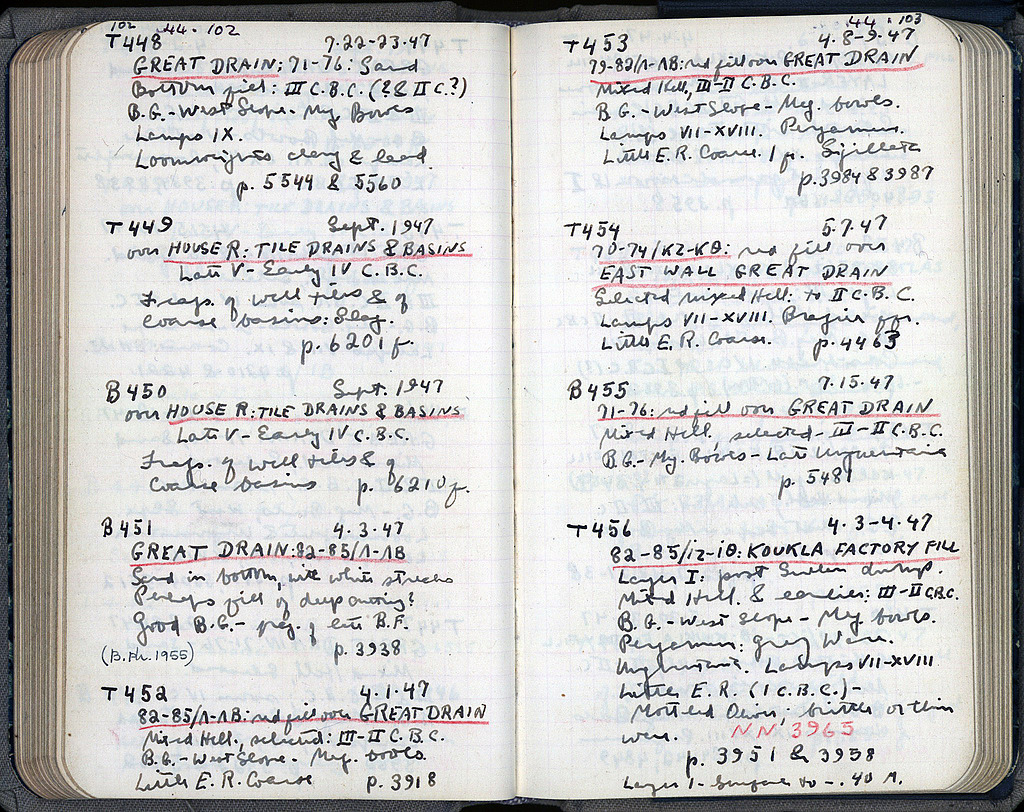 102
44. 102
T 448 7.22-23.47
GREAT DRAIN: 71-76: Sand
Bottom fill: III C.B.C. (? & II C.?)
B.G.-West Slope- Meg. Bowls
Lamps IX.
Loomweights clay & lead
p. 5544 & 5560
T 449 Sept. 1947
over HOUSE R: TILE DRAINS & BASINS
Late V- Early IV C.B.C.
Frags. of well tiles & of
coarse basins: Slag.
p. 6201 f.
B 450 Sept. 1947
over HOUSE R: TILE DRAINS & BASINS
Late V- Early IV C.B.C.
Frags. of well tiles & of
coarse basins p. 6210 f.
B 451 4.3.47
GREAT DRAIN: 82-85/Λ-ΛB
Sand in bottom, with white streaks
Perhaps fill of deep cutting?
Good B.G.- frag. of late B.F.
(B. Ph. 1955) p. 3938
T 452 4.1.47
82-85/Λ-ΛB: red fill over GREAT DRAIN
Mixed Hell., selected: III-II C.B.C.
B.G.-West Slope. Meg. bowls
Little E.R. Coarse p. 3918
44. 103
T 453 4.8-9.47
79-82/Λ-ΛB: red fill over GREAT DRAIN
Mixed Hell, III-II C.B.C.
B.G.-West Slope- Meg. bowls.
Lamps VII-XVIII. Pergamene.
Little E.R. Coarse. 1 fr. Sigillata
p. 3984 & 3987
T 454 5.7.47
70-74/KZ-KΘ: red fill over
EAST WALL GREAT DRAIN
Selected Mixed Hell: to II C.B.C.
Lamps VII-XVIII. Brazier frr.
Little E.R. Coarse. p. 4463
B 455 7.15.47
71-76: red fill over GREAT DRAIN
Mixed Hell, selected- III-II C.B.C.
B.G.- Meg. Bowls- Late Unguentaria
p. 5481
T 456 4.3-4.47
82-85/IZ-IΘ: KOUKLA FACTORY FILL
Layer I: post Sullan dump.
Mixed Hell. & earlier: III-II C.B.C.
B.G.-West Slope- Meg. bowls.
Pergamene: Grey Ware.
Unguentaria. Lamps VII-XVIII
Little E.R. (I C.B.C.)-
Mottled Olive, brittle or thin
ware. NN 3965
p. 3951 & 3958
Layer I- Surface to -.40 M.